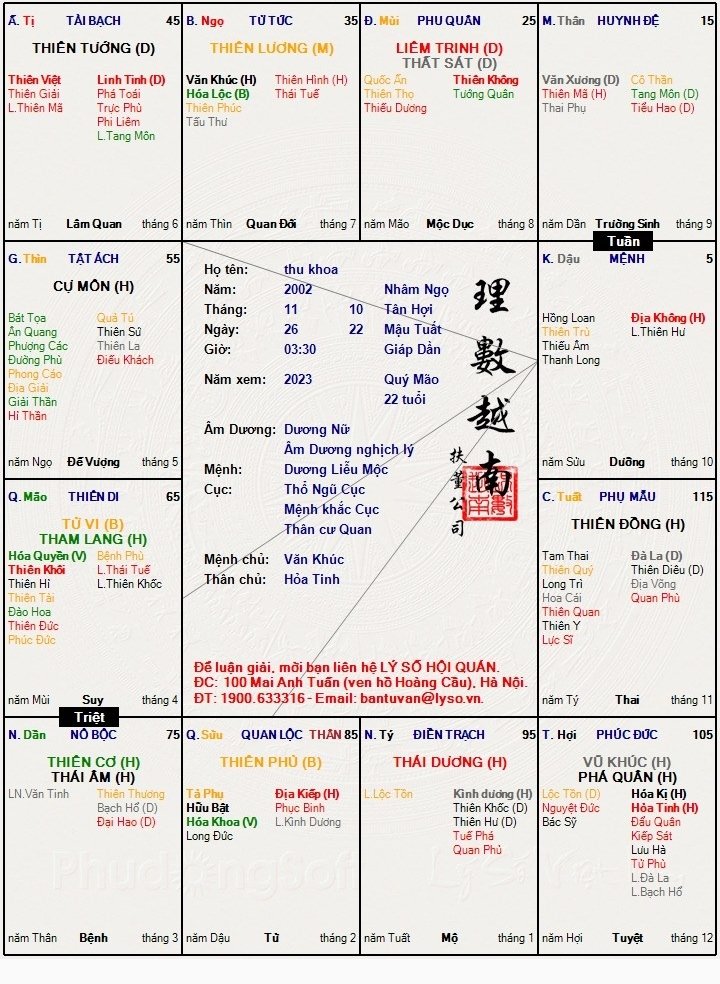 Ấ. Tị TÀI BẠCH 45
THIÊN TƯỚNG (D)
Thiên Việt Linh Tinh (D)
Thiên Giải Phá Toái
L.Thiên Mã Trực Phù
Phi Liêm
L.Tang Môn
năm Tị Lâm Quan tháng 6
B. Ngọ TỬ TỨC 35
THIÊN LƯƠNG (M)
Văn Khúc (H) Thiên Hình (H)
Hóa Lộc (B) Thái Tuế
Thiên Phúc
Tấu Thư
năm Thìn Quan Đới tháng 7
Đ. Mùi PHU QUÂN 25
LIÊM TRINH (D)
THẤT SÁT (D)
Quốc Ấn Thiên Không
Thiên Thọ Tướng Quân
Thiếu Dương
năm Mão Mộc Dục tháng 8
M. Thân HUYNH ĐỆ 15
Văn Xương (D) Cô Thần
Thiên Mã (H) Tang Môn (D)
Thai Phụ Tiểu Hao (D)
năm Dần Trường Sinh tháng 9
Tuần
G. Thìn TẬT ÁCH 55
CỰ MÔN (H)
Bát Tọa Quả Tú
Ân Quang Thiên Sứ
Phượng Các Thiên La
Đường Phù Điếu Khách
Phong Cáo
Địa Giải
Giải Thần
Hỉ Thần
năm Ngọ Đế Vượng tháng 5
Họ tên: thu khoa
Năm: 2002 Nhâm Ngọ
Tháng: 11 10 Tân Hợi
Ngày: 26 22 Mậu Tuất
Giờ: 03:30 Giáp Dần
Năm xem: 2023 Quý Mão
22 tuổi
Âm Dương: Dương Nữ
Âm Dương nghịch lý
Mệnh: Dương Liễu Mộc
Cục: Thổ Ngũ Cục
Mệnh khắc Cục
Thân cư Quan
Mệnh chủ: Văn Khúc
Thân chủ: Hỏa Tinh
理數越南
扶董公司
Để luận giải, mời bạn liên hệ LÝ SỐ HỘI QUÁN.
ĐC: 100 Mai Anh Tuấn (ven hồ Hoàng Cầu), Hà Nội.
ĐT: 1900.633316 - Email: bantuvan@lyso.vn.
K. Dậu MỆNH 5
Hồng Loan Địa Không (H)
Thiên Trù L.Thiên Hư
Thiếu Âm
Thanh Long
năm Sửu Dưỡng tháng 10
Q. Mão THIÊN DI 65
TỬ VI (B)
THAM LANG (H)
Hóa Quyền (V) Bệnh Phù
Thiên Khôi L.Thái Tuế
Thiên Hỉ L.Thiên Khốc
Thiên Tài
Đào Hoa
Thiên Đức
Phúc Đức
năm Mùi Suy tháng 4
Triệt
C. Tuất PHỤ MẪU 115
THIÊN ĐỒNG (H)
Tam Thai Đà La (D)
Thiên Quý Thiên Diêu (D)
Long Trì Địa Võng
Hoa Cái Quan Phù
Thiên Quan
Thiên Y
Lực Sĩ
năm Tý Thai tháng 11
N. Dần NÔ BỘC 75
THIÊN CƠ (H)
THÁI ÂM (H)
LN.Văn Tinh Thiên Thương
Bạch Hổ (D)
Đại Hao (D)
năm Thân Bệnh tháng 3
Q. Sửu QUAN LỘC THÂN 85
THIÊN PHỦ (B)
Tả Phụ Địa Kiếp (H)
Hữu Bật Phục Binh
Hóa Khoa (V) L.Kình Dương
Long Đức
năm Dậu Tử tháng 2
N. Tý ĐIỀN TRẠCH 95
THÁI DƯƠNG (H)
L.Lộc Tồn Kình dương (H)
Thiên Khốc (D)
Thiên Hư (D)
Tuế Phá
Quan Phủ
năm Tuất Mộ tháng 1
T. Hợi PHÚC ĐỨC 105
VŨ KHÚC (H)
PHÁ QUÂN (H)
Lộc Tồn (D) Hóa Kị (H)
Nguyệt Đức Hỏa Tinh (H)
Bác Sỹ Đẩu Quân
Kiếp Sát
Lưu Hà
Tử Phù
L.Đà La
L.Bạch Hổ
năm Hợi Tuyệt tháng 12